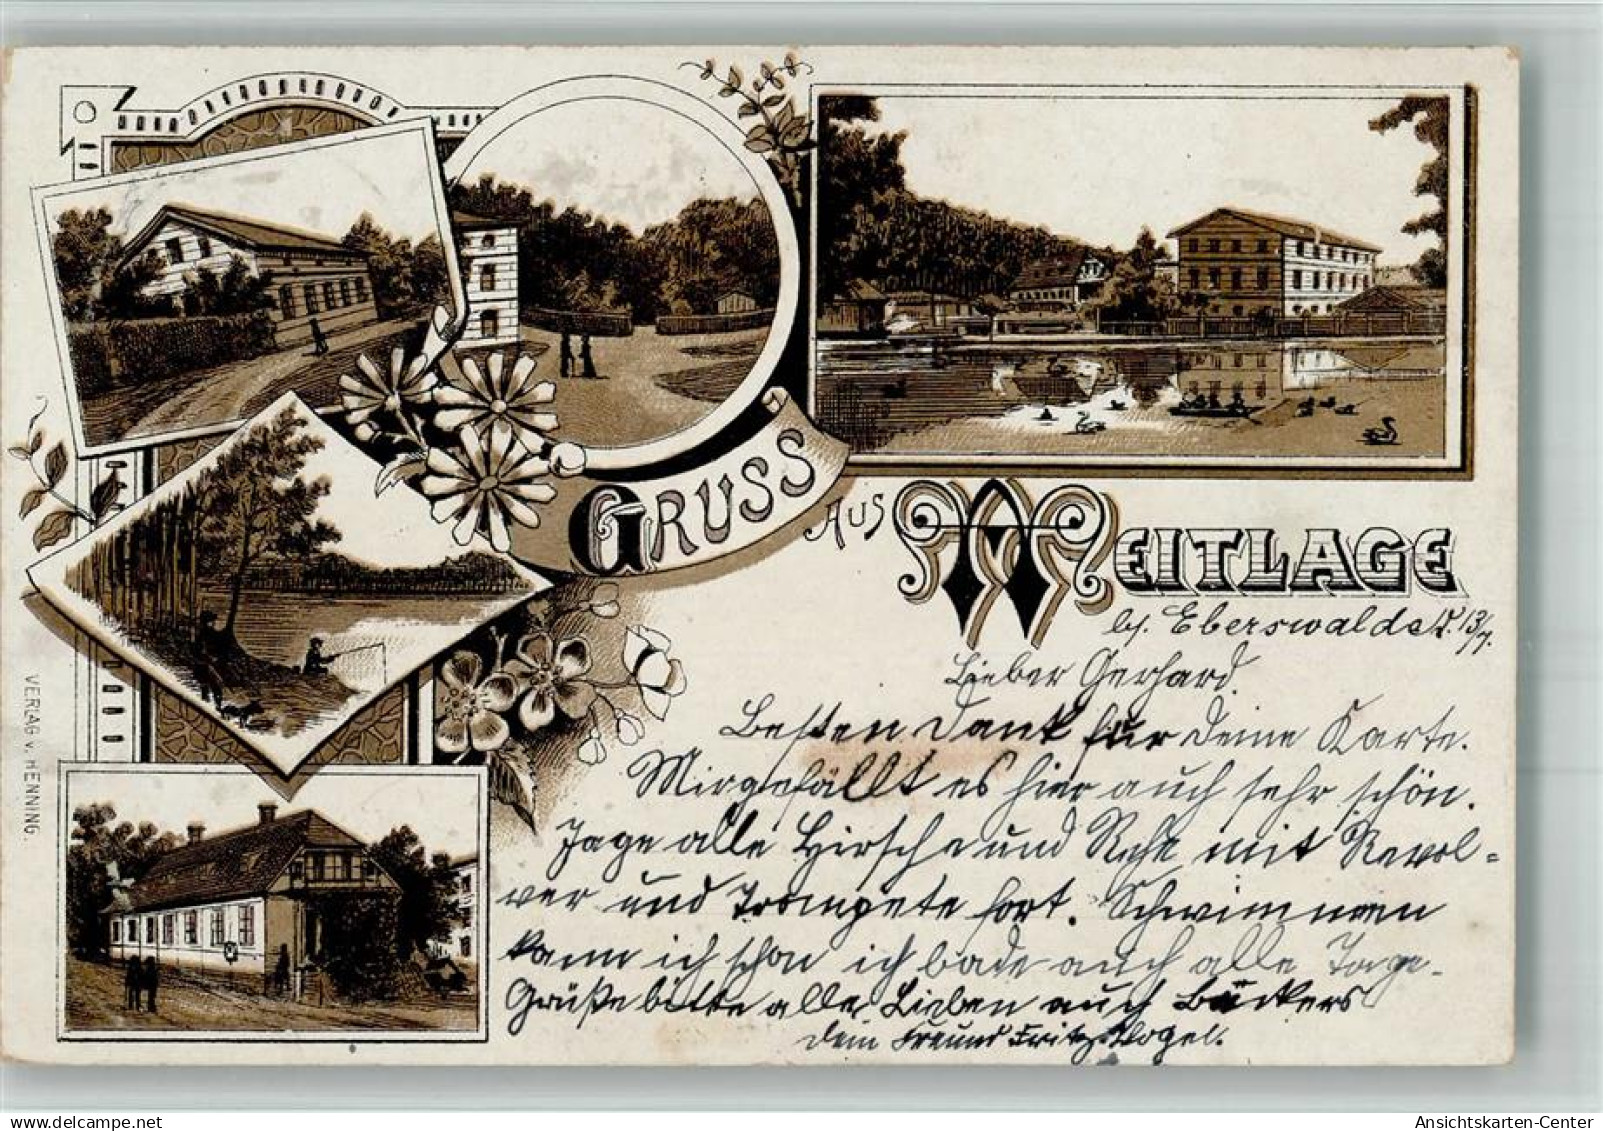 GRUSS AUS WEITLAGE
b/. Eberswalde d. 13/7.
Lieber Gerhard.
Besten Dank für Deine Karte.
Mir gefällt es hier auch sehr schön.
Jage alle Hirsche und Rehe mit Revol=
ver und Trompete fort. Schwimmen
kann ich schon ich bade auch alle Tage.
Grüße bitte alle Lieben auch Bäckers
Dein Freund Fritz Vogel.
VERLAG v. HENNING.
delcampe.net
Ansichtskarten-Center